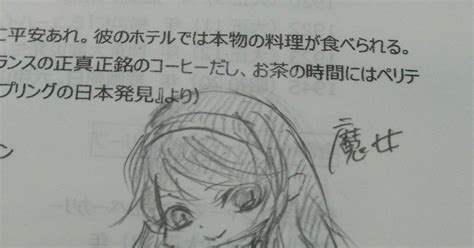 に平安あれ。彼のホテルでは本物の料理が食べられる。
ランスの正真正銘のコーヒーだし、お茶の時間にはペリテ
プリングの日本発見』より)
魔女
ン